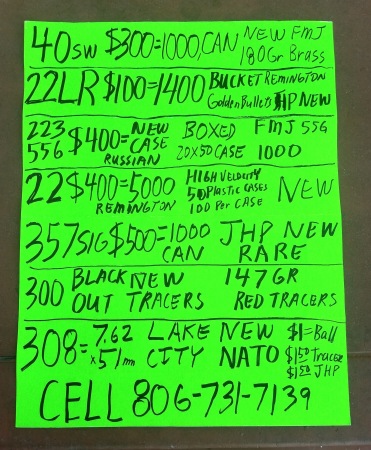 40SW $300=1000,CAN NEW FMJ
180Gr Brass
22LR $100=1400 BUCKET REMINGTON
Golden Bullets HP NEW
223 $400= NEW BOXED FMJ 556
556 CASE 20x50 CASE 1000
RUSSIAN
22 $400=5000 HIGH VELOCITY NEW
REMINGTON 50 Plastic CASES
100 Per CASE
357SIG $500=1000 JHP NEW
CAN RARE
300 BLACK NEW 147GR
OUT TRACERS RED TRACERS
308= 7.62 LAKE NEW $1=Ball
x51mm CITY NATO $1.50 Tracer
$1.50 JHP
CELL 806-731-7139